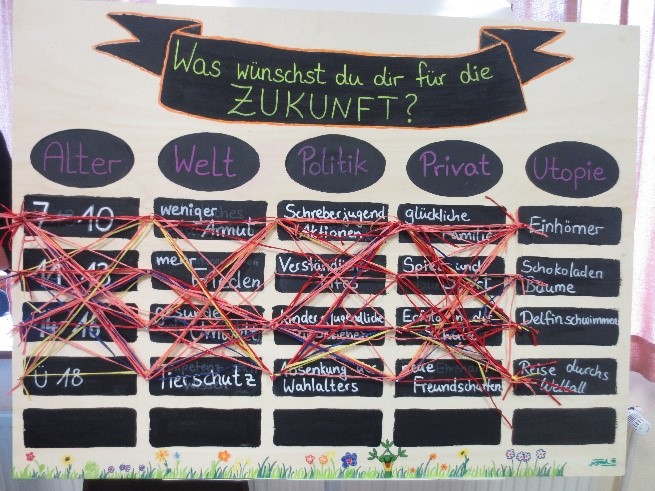 Was wünschst du dir für die
ZUKUNFT?
Alter
Welt
Politik
Privat
Utopie
7 10
weniger
Armut
Schreberjugend
Aktionen
glückliche
Familie
Einhörner
mehr
Frieden
Spiel und
Schokoladen
Bäume
gesunde
Umwelt
Kinder Jugendliche
Delfinschwimmen
Ü 18
Tierschutz
Absenkung
Wahlalters
neue
Freundschaften
Reise durchs
Weltall